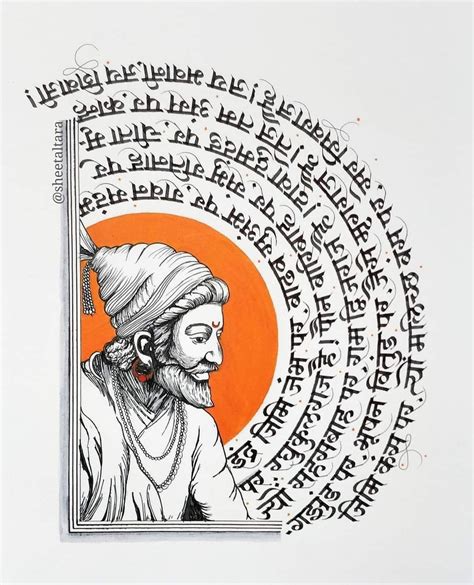 @sheetaltara
इंद्र जिमि जंभ पर. बाडव सुअंभ पर. रावन सदंभ
पर. रघुकुलराज है। पौन बारिवाह पर. संभु रतिनाह पर.
ज्यों सहसबाह पर राम द्विजराज है। दावा द्रुमदंड पर. चीता मृ
गझुंड पर. भूषन वितुंड पर. जैसे मृगराज है। तेज तम अंस पर. कान्ह
जिमि कंस पर. त्यों मलिच्छ बंस पर. सेर शिवराज है। जय भवानी. जय शिवाजी।